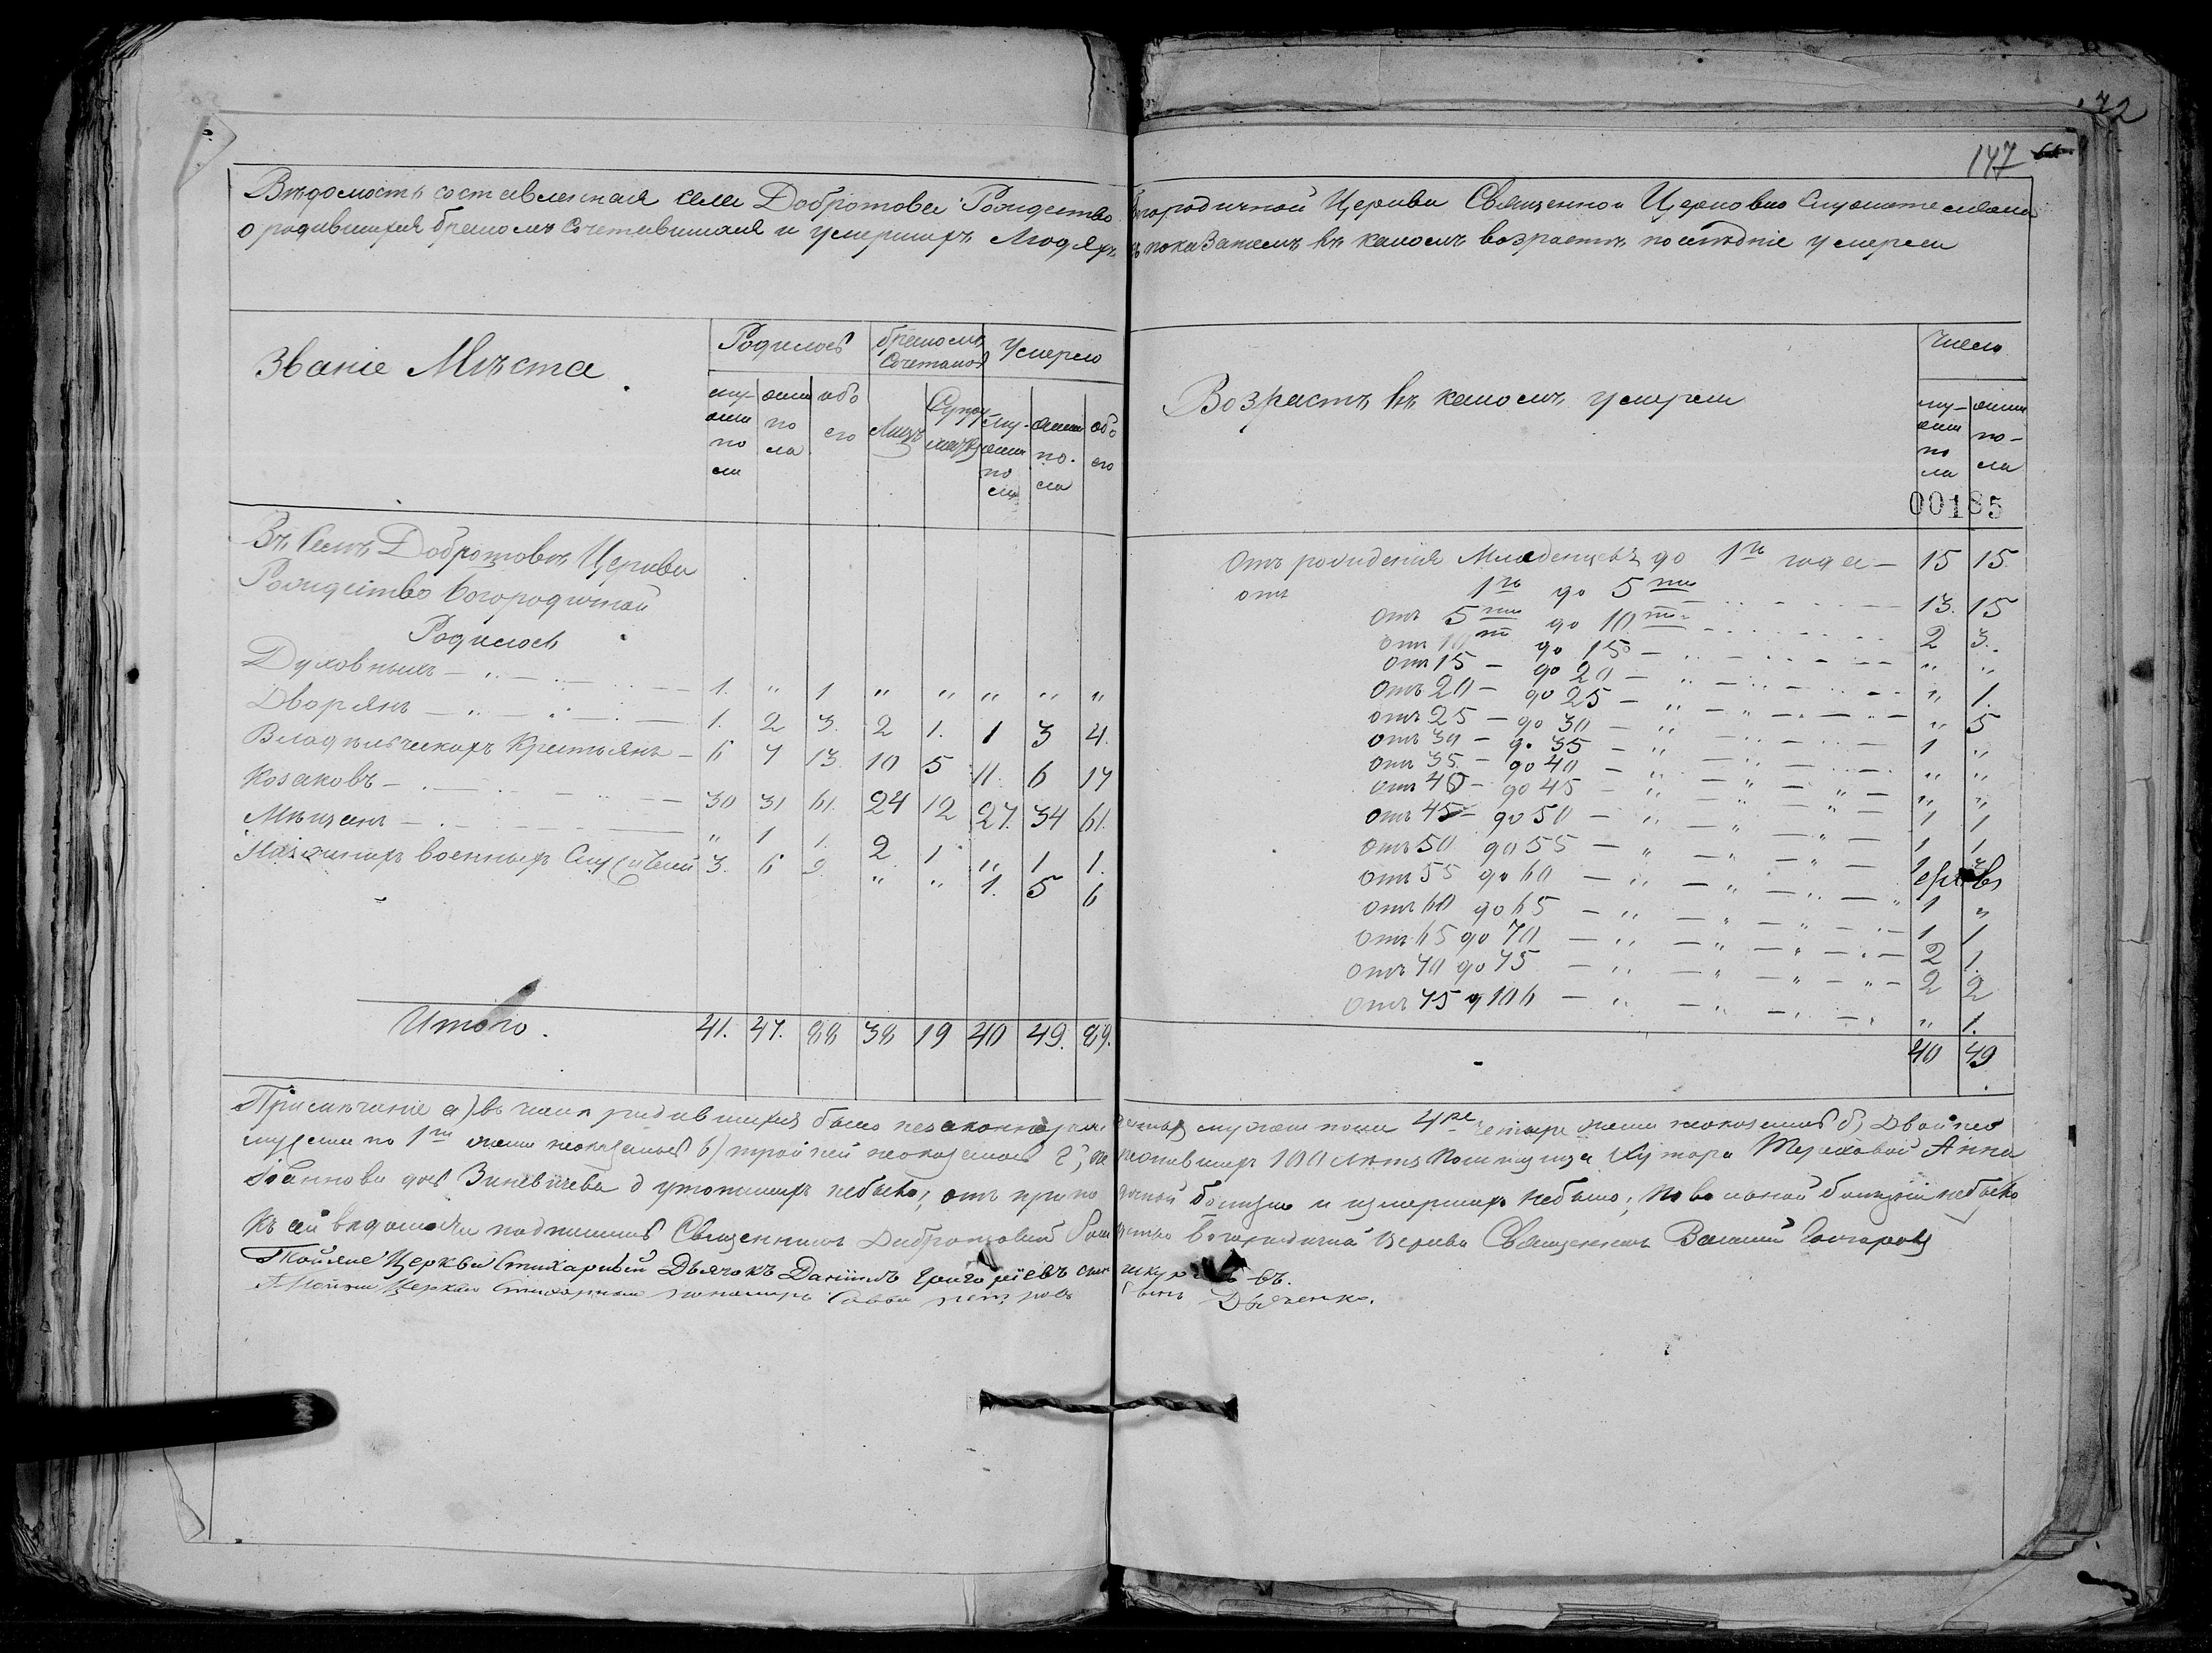 147
Вѣдомость составленная села Добротова Рождество Богородичной Церкви Священно и Церковно Служителями
о родившихся бракомъ сочетавшихся и умершихъ Людяхъ съ показаніемъ въ какомъ возрастѣ послѣдніе умерли
Званіе Мѣста
Родилось
бракомъ Сочетанов
Умерло
му- жеска по ла
женска по ла
обо его
Лицъ
Супружествъ
му- жеска по ла
женска по- ла
обо его
Возрастъ въ какомъ умерли
Число
му- жеска по ла
женска по- ла
00185
Въ Селѣ Добротовѣ Церкви
Рождество Богородичной
Родилось
Духовныхъ 1. " 1 " " " " "
Дворянъ 1. 2 3. 2 1. 1 3 4.
Владѣльческихъ Крестьянъ 6 7 13. 10 5 11. 6 17
Козаковъ 30 31 61. 24 12 27. 34 61.
Мѣщанъ " 1 1. 2 1 " 1 1.
военныхъ 3. 6 9. " " 1. 5 6
Итого. 41. 47. 88 38 19 40 49. 89.
Отъ рожденія Младенцевъ до 1го года 15 15.
отъ 1го до 5ти 13. 15
отъ 5ти до 10ти 2 3.
отъ 10ти до 15 " "
отъ 15 до 20 " 1.
отъ 20 до 25 " 5
отъ 25 до 30 1 "
отъ 30 до 35 " "
отъ 35 до 40 " "
отъ 40 до 45 1 1
отъ 45 до 50 1 1
отъ 50 до 55 1
отъ 55 до 60 1 "
отъ 60 до 65 1 1
отъ 65 до 70 2 1.
отъ 70 до 75 2 2
отъ 75 до 106 " 1.
40 49
Примѣчаніе а) въ числѣ родившихся было незаконнорожденныхъ мужеска пола 4ре четыре женска неоказалось б) Двойнев
мужеска по 1му женска неоказалось в) тройней неоказалось г) 100 лѣтъ хутора Анна
Іоаннова дочь Зиневичева д утопшихъ небыло, отъ болезни и измершихъ небыло; повальной болезни небыло
Къ сей вѣдомости подписался Священникъ Добротовской Рождество Богородичной Церкви Священникъ Василій Гончаровъ
Тойже Церкви Стихарный Дьячокъ Даніилъ Григоріевъ сынъ
Тойже Церкви Стихарный пономарь Савва Петровъ сынъ Дьяченко.